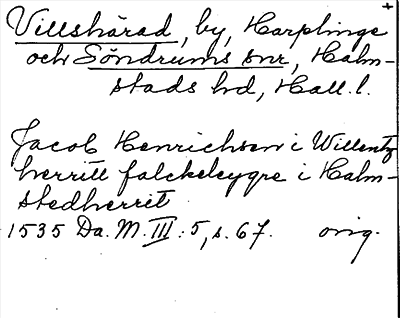 Villshärad, by, Harplinge
och Söndrums snr, Halm-
stads hd, Hall. l.
Jacob Henrichsen i Willentz
herritt falckeleygre i Halm-
stedherrit
1535 Da. M. III: 5, s. 67. orig.